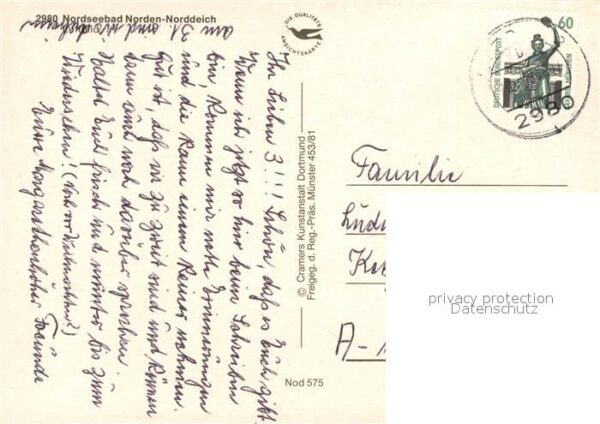 2980 Nordseebad Norden-Norddeich
DIE QUALITÄTS
ANSICHTSKARTE
60
DEUTSCHE BUNDESPOST
MÜNCHEN
2980
Ihr Lieben 3!!! Schön, daß es Euch gibt.
Wenn ich jetzt so hier beim Schreiben
bin, kommen mir nette Erinnerungen
und die kann einem keiner nehmen.
Gut ist, daß wir zu zweit sind und können
dann auch noch darüber sprechen.
Haltet Euch frisch und munter bis zum
Wiedersehen! (Noch vor Weihnachten?)
Eure Freunde
am und
© Cramers Kunstanstalt Dortmund
Freigeg. d. Reg.-Präs. Münster 453/81
Nod 575
Familie
Ludw
A-
privacy protection
Datenschutz